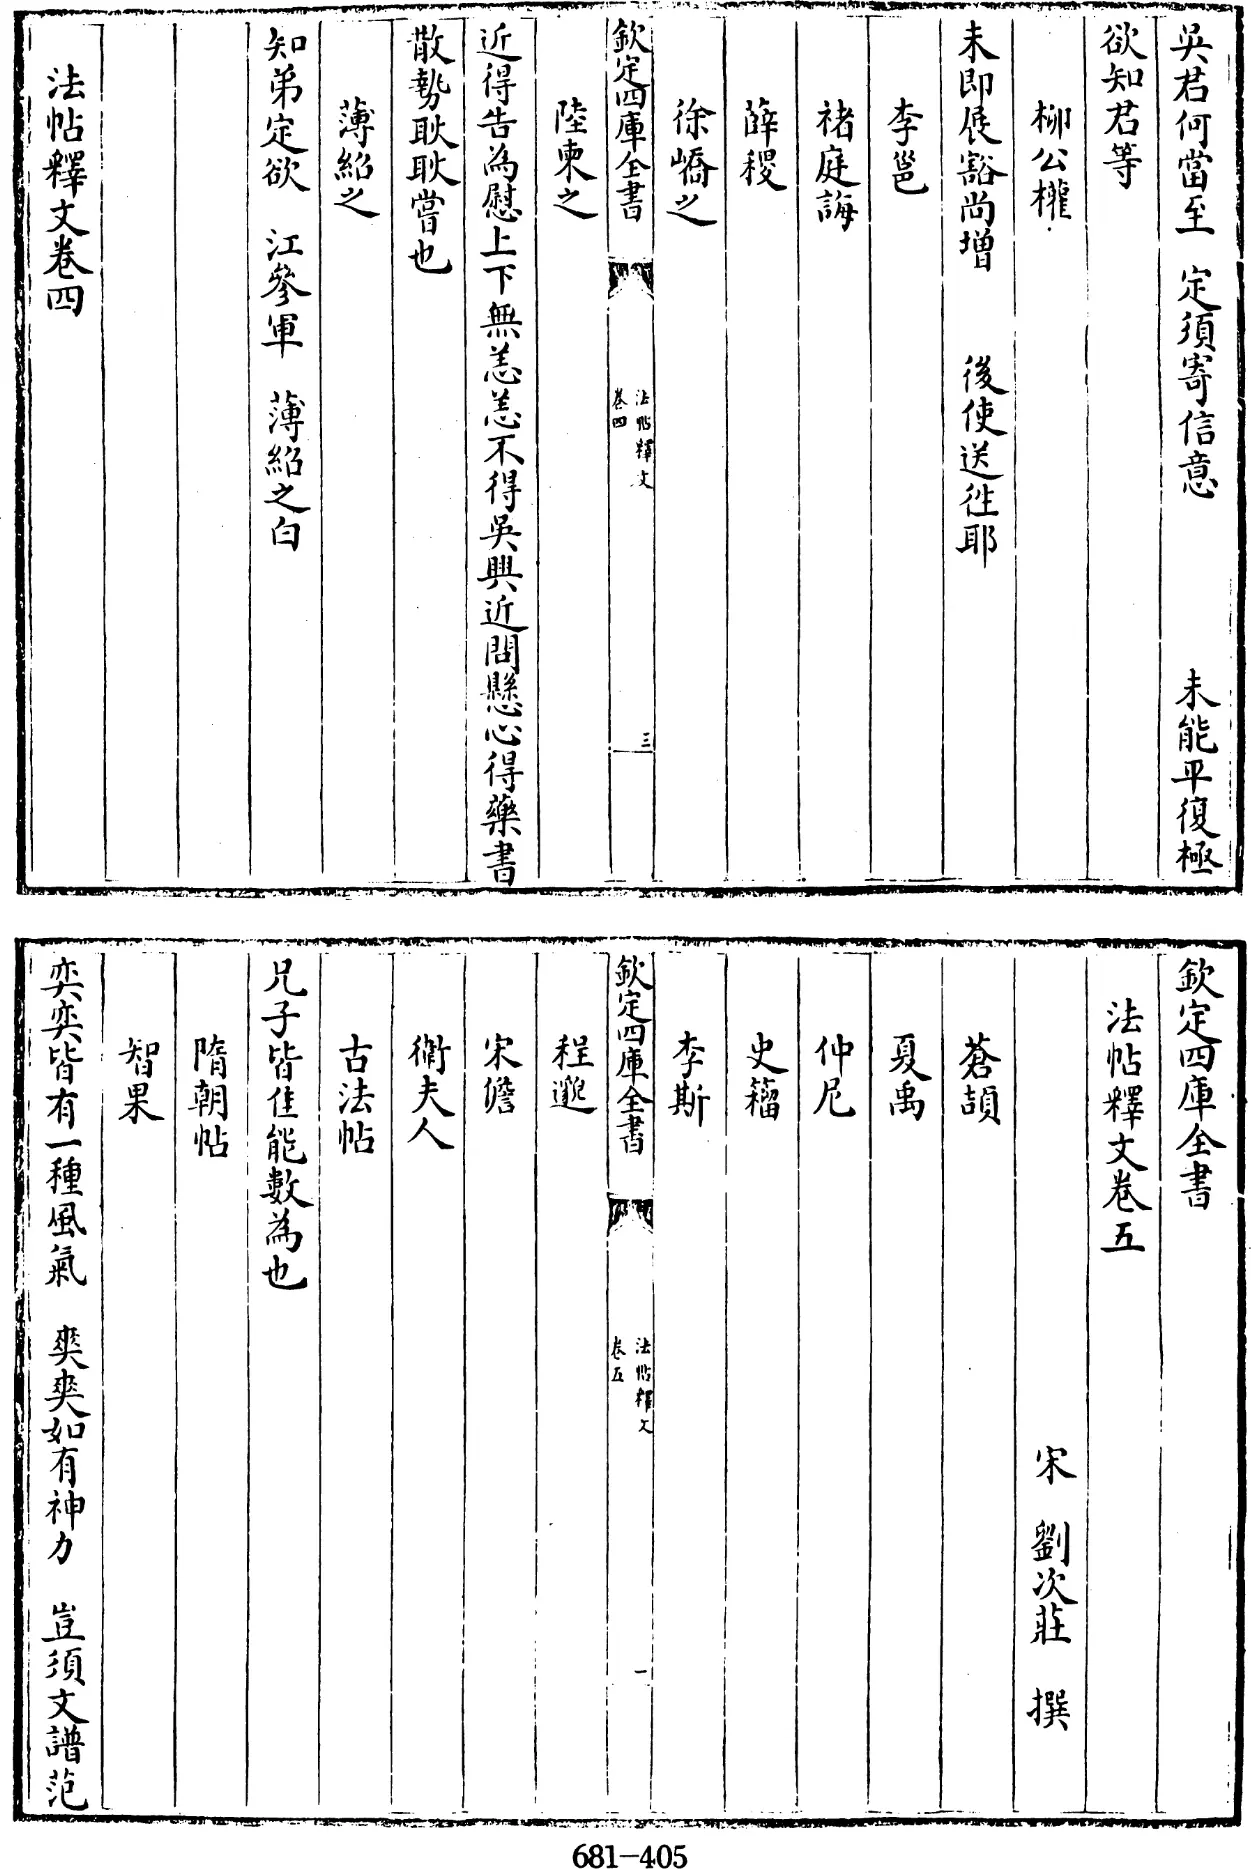 吳君何當至　定須寄信意　未能平復極
欲知君等
柳公權
未即展豁尚增　後使送往耶
李邕
禇庭誨
薛稷
徐嶠之
欽定四庫全書
法帖釋文
卷四
三
陸柬之
近得告為慰上下無恙恙不得吳興近問懸心得藥書
散勢耿耿嘗也
薄紹之
知弟定欲　江參軍　薄紹之白
法帖釋文卷四
欽定四庫全書
法帖釋文卷五
宋　劉次莊　撰
蒼頡
夏禹
仲尼
史籀
李斯
欽定四庫全書
法帖釋文
卷五
一
程邈
宋儋
衛夫人
古法帖
兄子皆佳能數為也
隋朝帖
智果
奕奕皆有一種風氣　爽爽如有神力　豈須文譜范
681-405